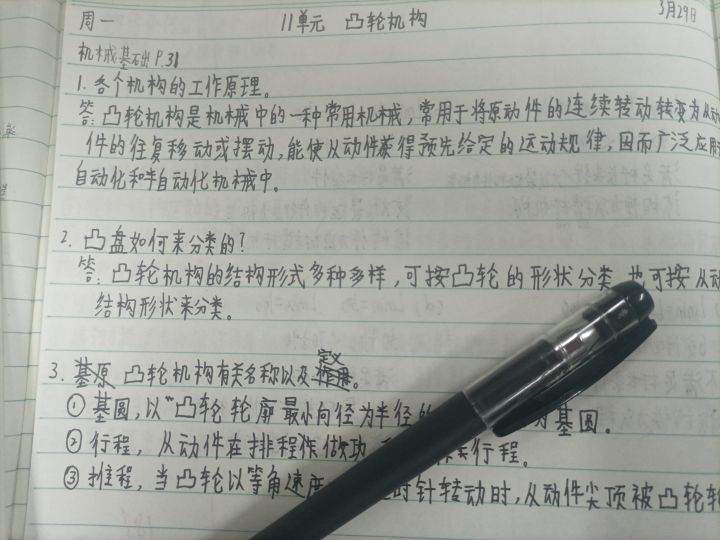 周一 11单元 凸轮机构 3月29日
机械基础 P.31
1. 各个机构的工作原理。
答: 凸轮机构是机械中的一种常用机械, 常用于将原动件的连续转动转变为从动
件的往复移动或摆动, 能使从动件获得预先给定的运动规律, 因而广泛应用
自动化和半自动化机械中。
2. 凸盘如何来分类的?
答: 凸轮机构的结构形式多种多样, 可按凸轮的形状分类, 也可按从动
结构形状来分类。
定义
3. 凸轮机构有关名称以及。
① 基圆, 以“凸轮轮廓最小向径为半径的 为基圆。
② 行程, 从动件在排程 行程。
③ 推程, 当凸轮以等角速度 时针转动时, 从动件尖顶被凸轮轮